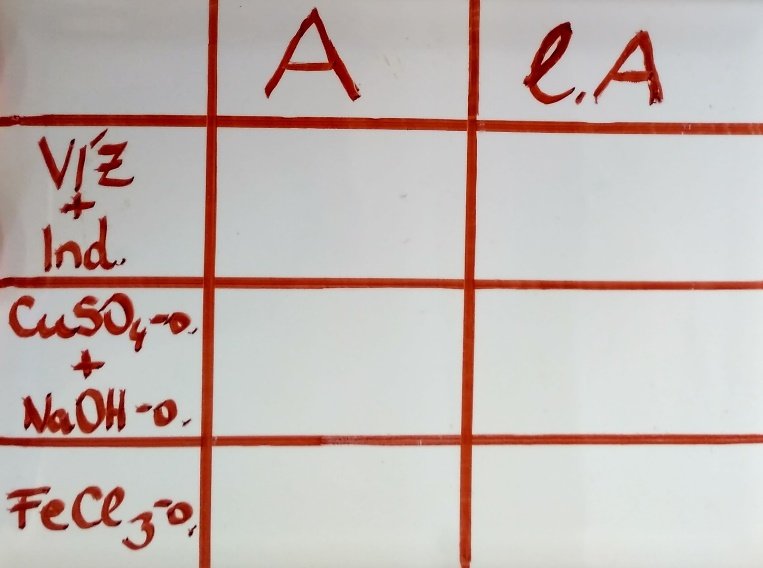 A
l.A
VÍZ
+
Ind.
CuSO4-o.
+
NaOH-o.
FeCl3-o.